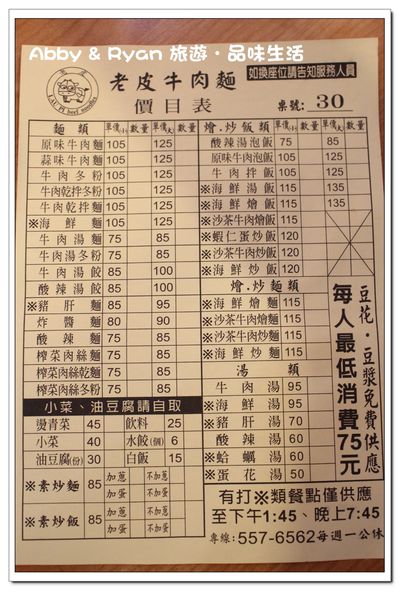 Abby & Ryan 旅遊‧品味生活
如換座位請告知服務人員
老皮
LAU PI beef noodles
老皮牛肉麵
價目表
票號: 30
麵類 單價(小) 數量 單價(大) 數量
原味牛肉麵 105 125
蒜味牛肉麵 105 125
牛肉冬粉 105 125
牛肉乾拌冬粉 105 125
牛肉乾拌麵 105 125
※海鮮麵 105 125
牛肉湯麵 75 85
牛肉湯冬粉 75 85
牛肉湯餃 85 100
酸辣湯餃 85 100
※豬肝麵 85 95
炸醬麵 80 90
酸辣麵 75 85
榨菜肉絲麵 75 85
榨菜肉絲乾麵 75 85
榨菜肉絲冬粉 75 85
小菜、油豆腐請自取
燙青菜 45 飲料 25
小菜 40 水餃(個) 6
油豆腐(份) 30 白飯 15
※素炒麵 85 加蔥 不加蔥
加蛋 不加蛋
※素炒飯 85 加蔥 不加蔥
加蛋 不加蛋
燴.炒飯類 單價(小) 數量 單價(大) 數量
酸辣湯泡飯 75 85
原味牛肉泡飯 105 125
牛肉拌飯 105 125
※海鮮湯飯 115 135
※海鮮燴飯 115 135
※沙茶牛肉燴飯 115
※蝦仁蛋炒飯 120
※沙茶牛肉炒飯 120
※海鮮炒飯 120
燴.炒麵類
※海鮮燴麵 115
※沙茶牛肉燴麵 115
※沙茶牛肉炒麵 115
※海鮮炒麵 115
湯類
牛肉湯 95
※海鮮湯 95
※豬肝湯 70
酸辣湯 60
※蛤蠣湯 60
※蛋花湯 50
豆花‧豆漿免費供應
每人最低消費75元
有打※類餐點僅供應
至下午1:45、晚上7:45
專線: 557-6562 每週一公休